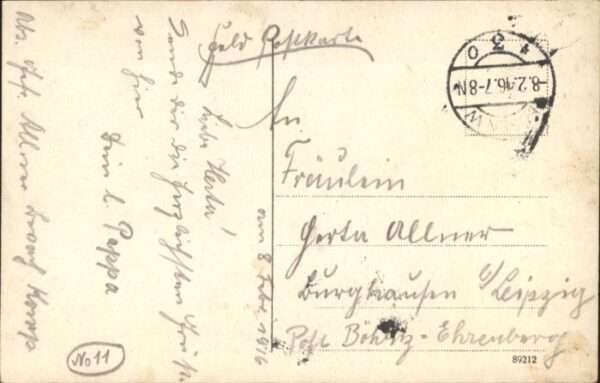 Feld Postkarte
8.2.16.7-8N
An
Fräulein
Herta Allner
Burghausen b/ Leipzig
Post Böhlitz-Ehrenberg
89212
am 8 Febr. 1916
Liebe Herta!
Sende dir die herzlichsten Grüße
von hier
Dein l. Pappa
Abs. Gefr. Allner
No 11